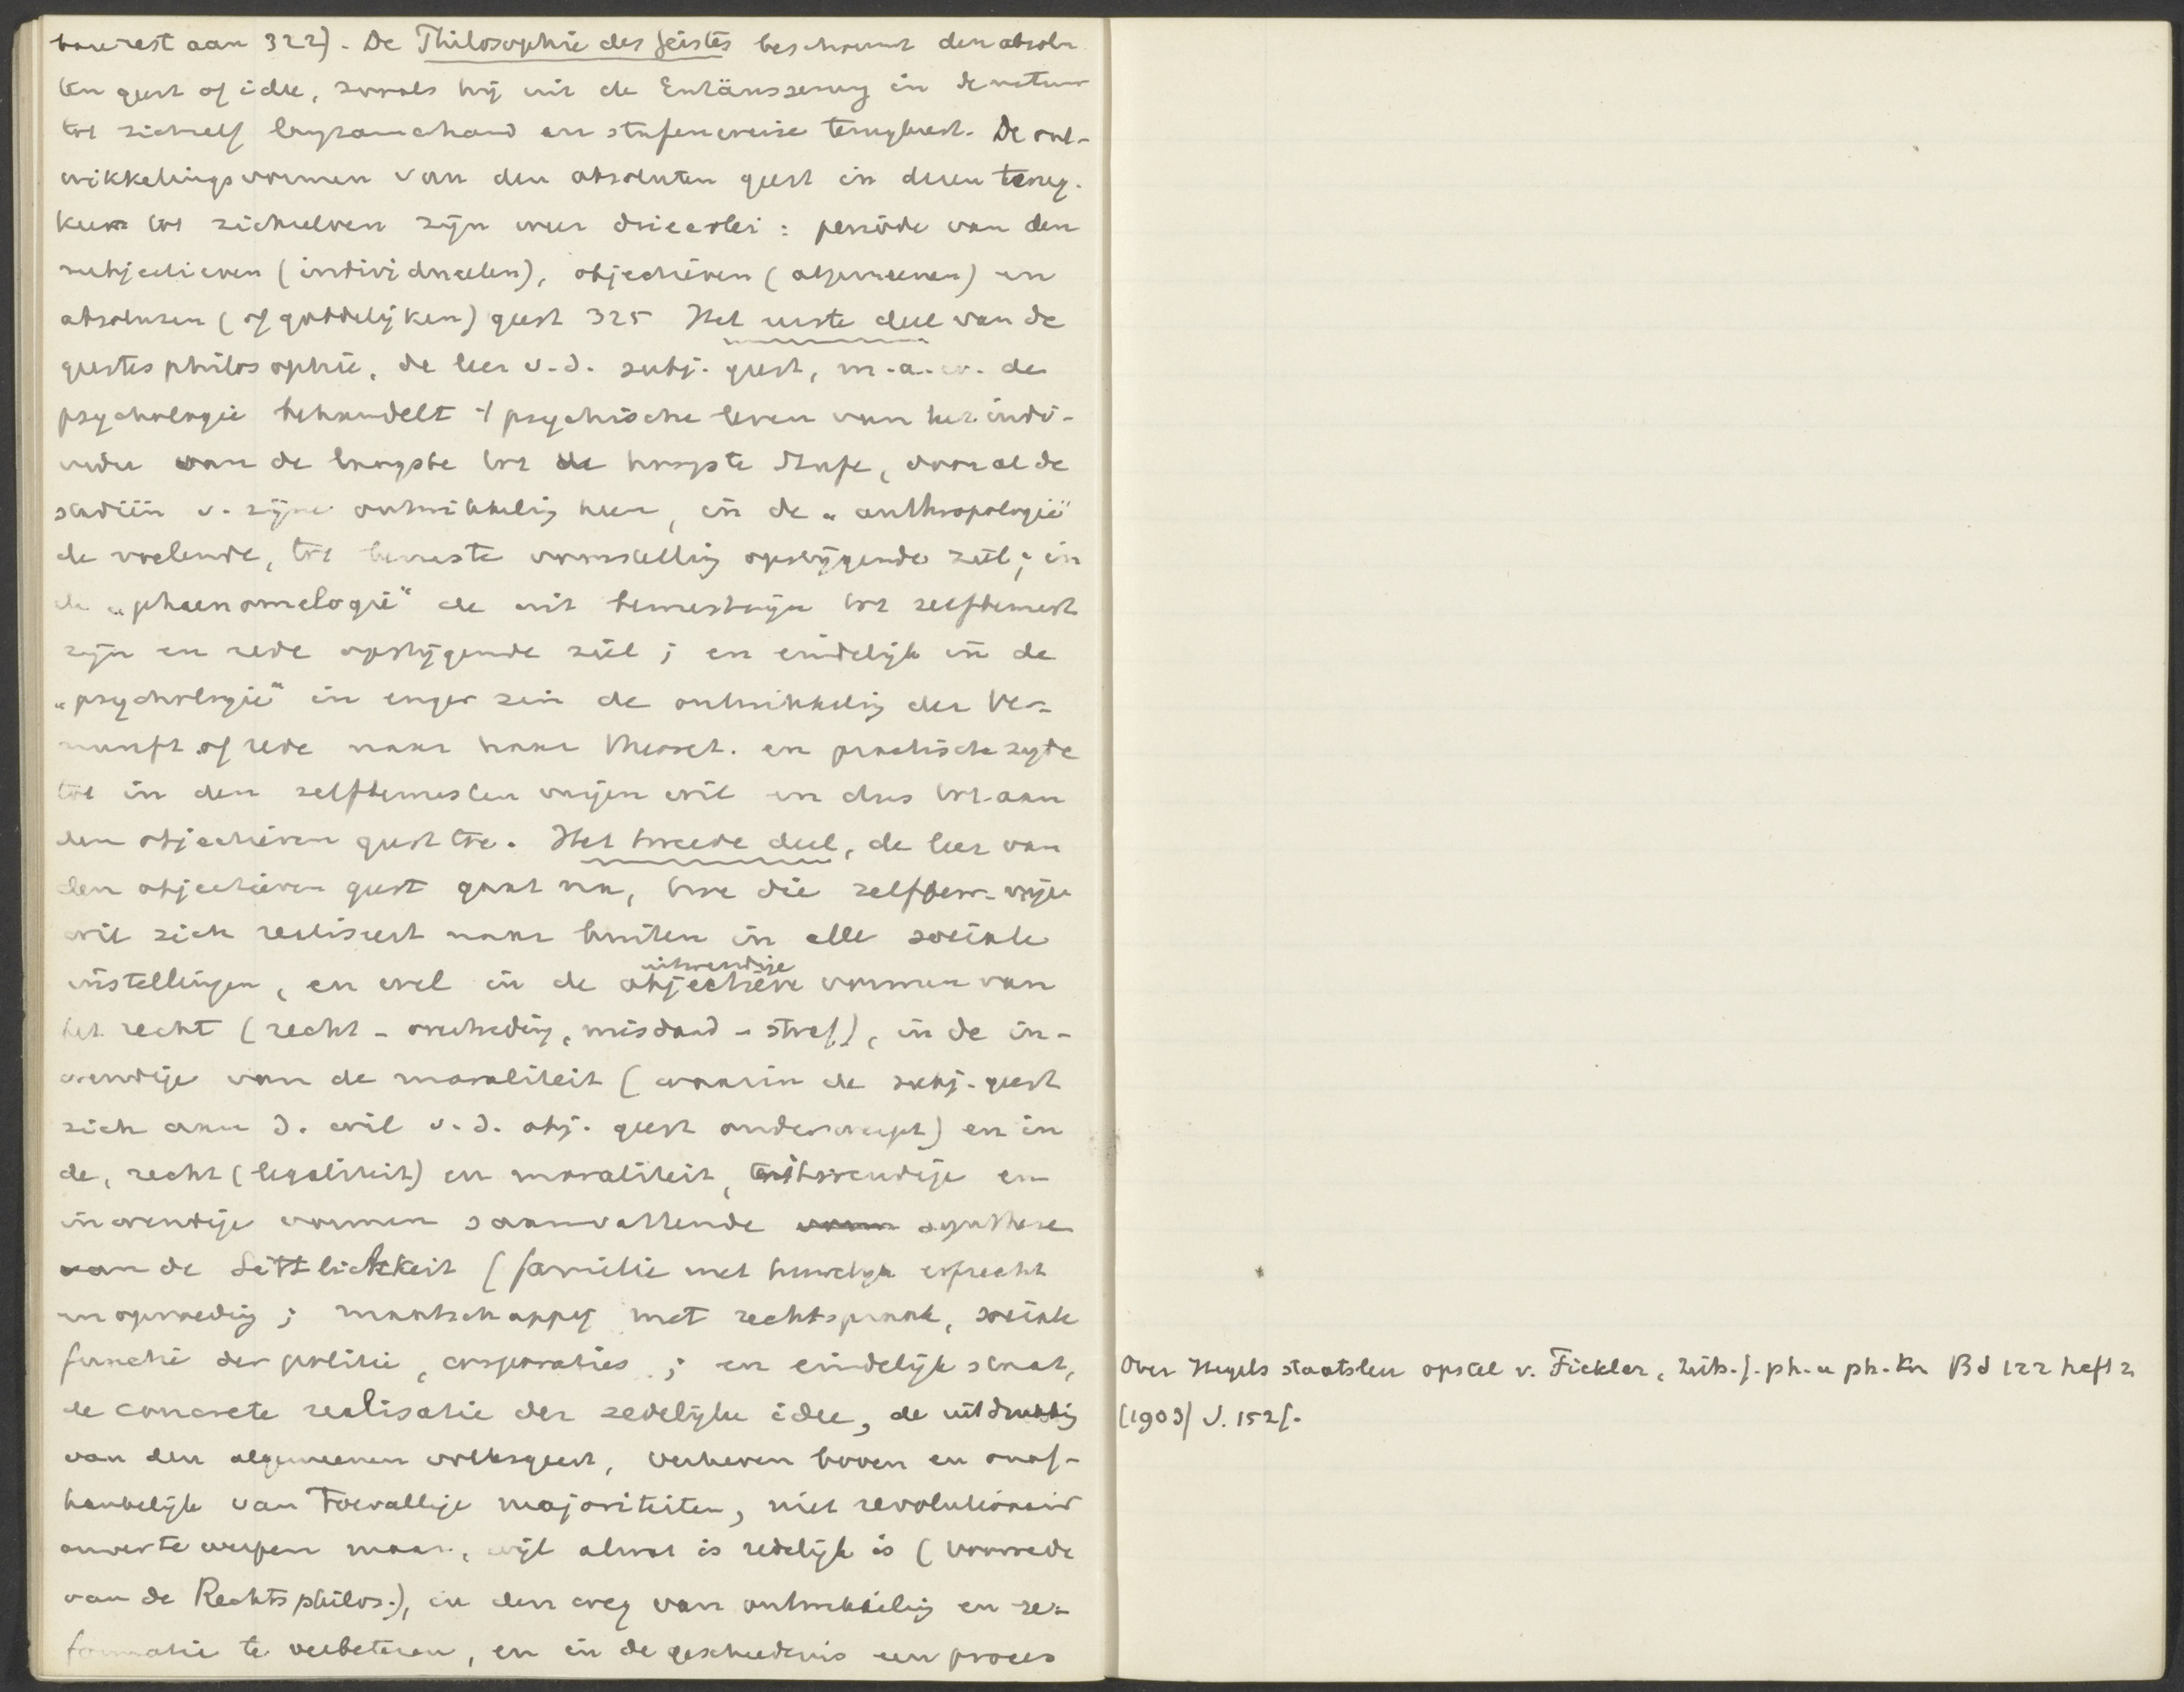 aan 322). De Philosophie des Geistes beschouwt den absolu
ten geest of idee, zooals hij uit de Entäusserung in de natuur
tot zichzelf langzamerhand en stufenweise terugkeert. De ont-
wikkelingsvormen van den absoluten geest in dezen terug-
keer tot zichzelven zijn weer drieerlei: periode van den
subjectieven (individueelen), objectieven (algemeenen) en
absoluten (of goddelijken) geest 325 Het eerste deel van de
geestesphilosophie, de leer v.d. subj. geest, m.a.w. de
psychologie behandelt 't psychische leven van het indi-
vidu van de laagste tot de hoogste Stufe, door al de
stadiën v. zijne ontwikkeling heen, in de „anthropologie"
de voelende, tot bewuste voorstelling opstijgende ziel; in
de „phaenomelogie" de uit bewustzijn tot zelfbewust
zijn en rede opstijgende ziel; en eindelijk in de
„psychologie" in enger zin de ontwikkeling der Ver-
nunft of rede naar haar theoret. en practische zijde
tot in den zelfbewusten vrijen wil en dus tot aan
den objectieven geest toe. Het tweede deel, de leer van
den objectieven geest gaat na, hoe die zelfbew. vrije
wil zich realiseert naar buiten in alle sociale
instellingen, en wel in de objectieve uitwendige vormen van
het recht (recht - overtreding, misdaad - straf), in de in-
wendige van de moraliteit (waarin de subj. geest
zich aan d. wil v.d. obj. geest onderwerpt) en in
de, recht (legaliteit) en moraliteit, uitwendige en
inwendige vormen saamvattende vorm synthese
van de Sittlichkeit (familie met huwelijk erfrecht
en opvoeding; maatschappij met rechtspraak, sociale
functie der politie, corporaties; en eindelijk staat,
de concrete realisatie der zedelijke idee, de uitdrukking
van den algemeenen volksgeest, verheven boven en onaf-
hankelijk van toevallige majoriteiten, niet revolutionair
omver te werpen maar, wijl al wat is redelijk is (voorrede
van de Rechtsphilos.), in den weg van ontwikkeling en re-
formatie te verbeteren, en in de geschiedenis een proces
Over Hegels staatsleer opstel v. Fickler, Zeits. f. ph. u ph. Kr Bd 122 heft 2
(1903) S. 152f.